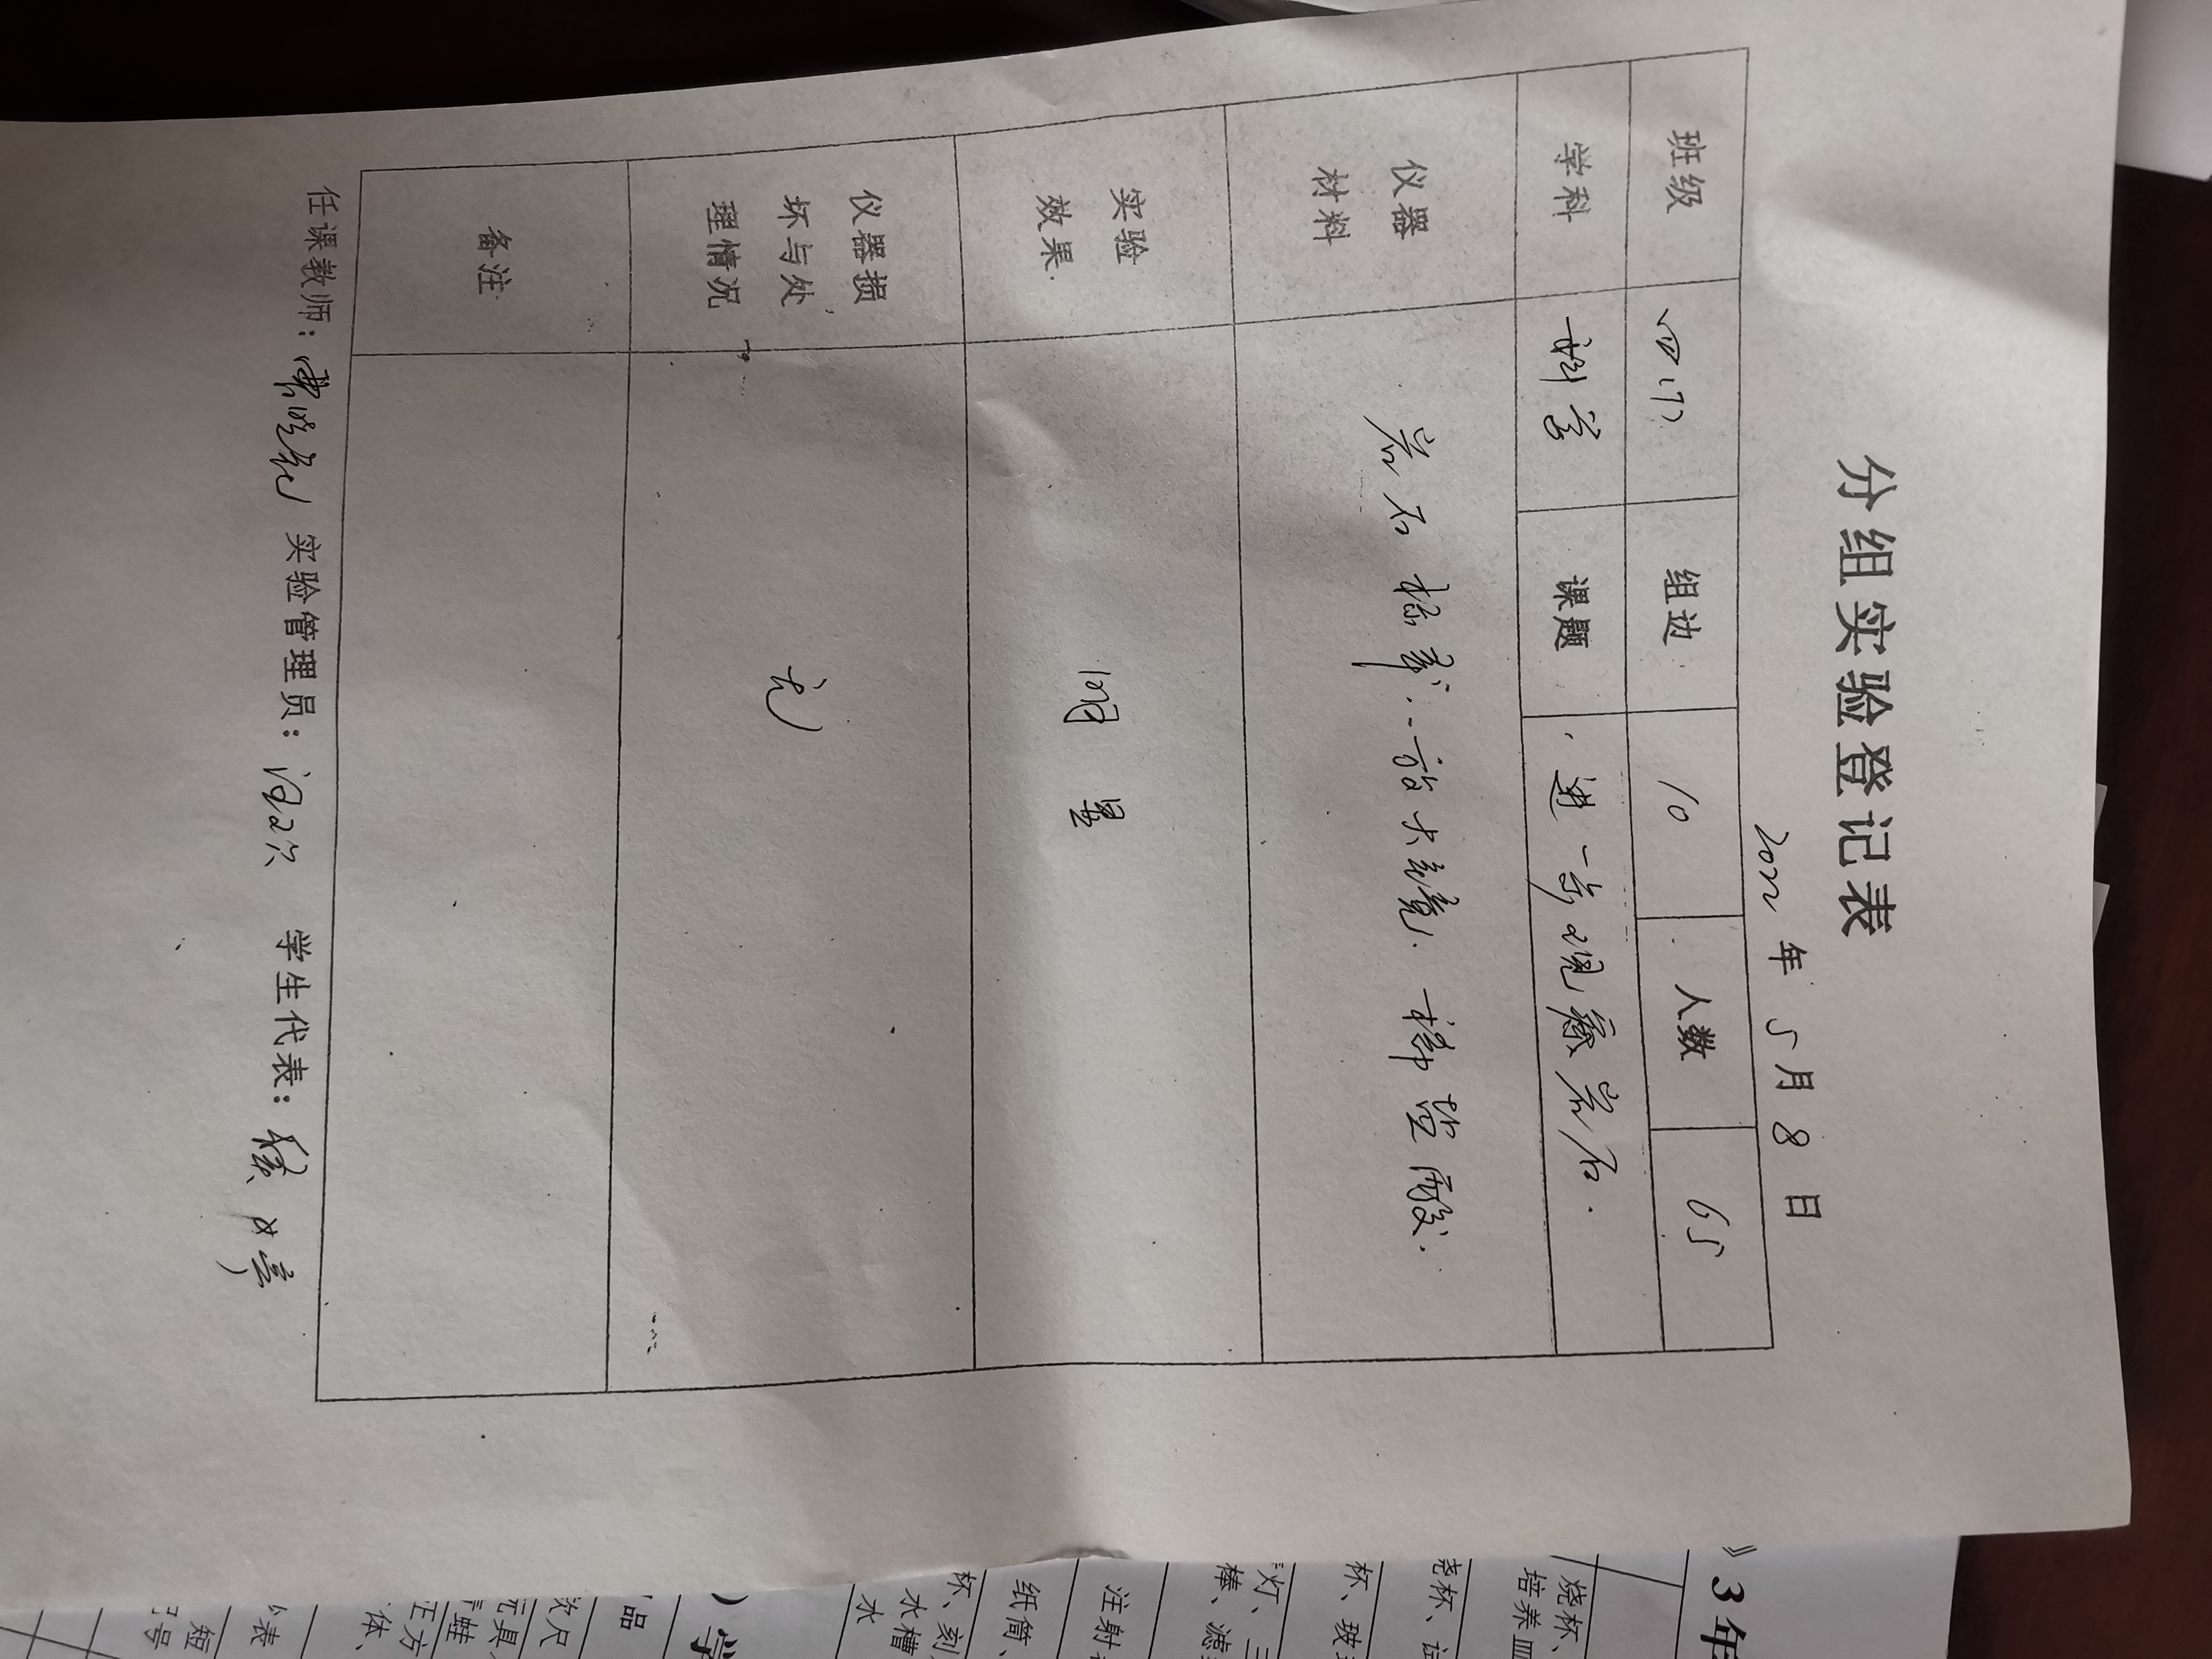 分组实验登记表
2022年5月8日
班级 四(7) 组边 10 人数 65
学科 科学 课题 进一步观察岩石.
仪器 岩石标本、放大镜、稀盐酸.
材料
实验 明显
效果
仪器损 无
坏与处
理情况
备注
任课教师: 实验管理员: 学生代表:
》3年
烧杯、
培养皿
烧杯、试
杯、玻
灯、三
棒、滤
注射
纸筒、
杯、刻
水槽
水
)学
品
尺
元具
蛙
正方
体、
表
短
号